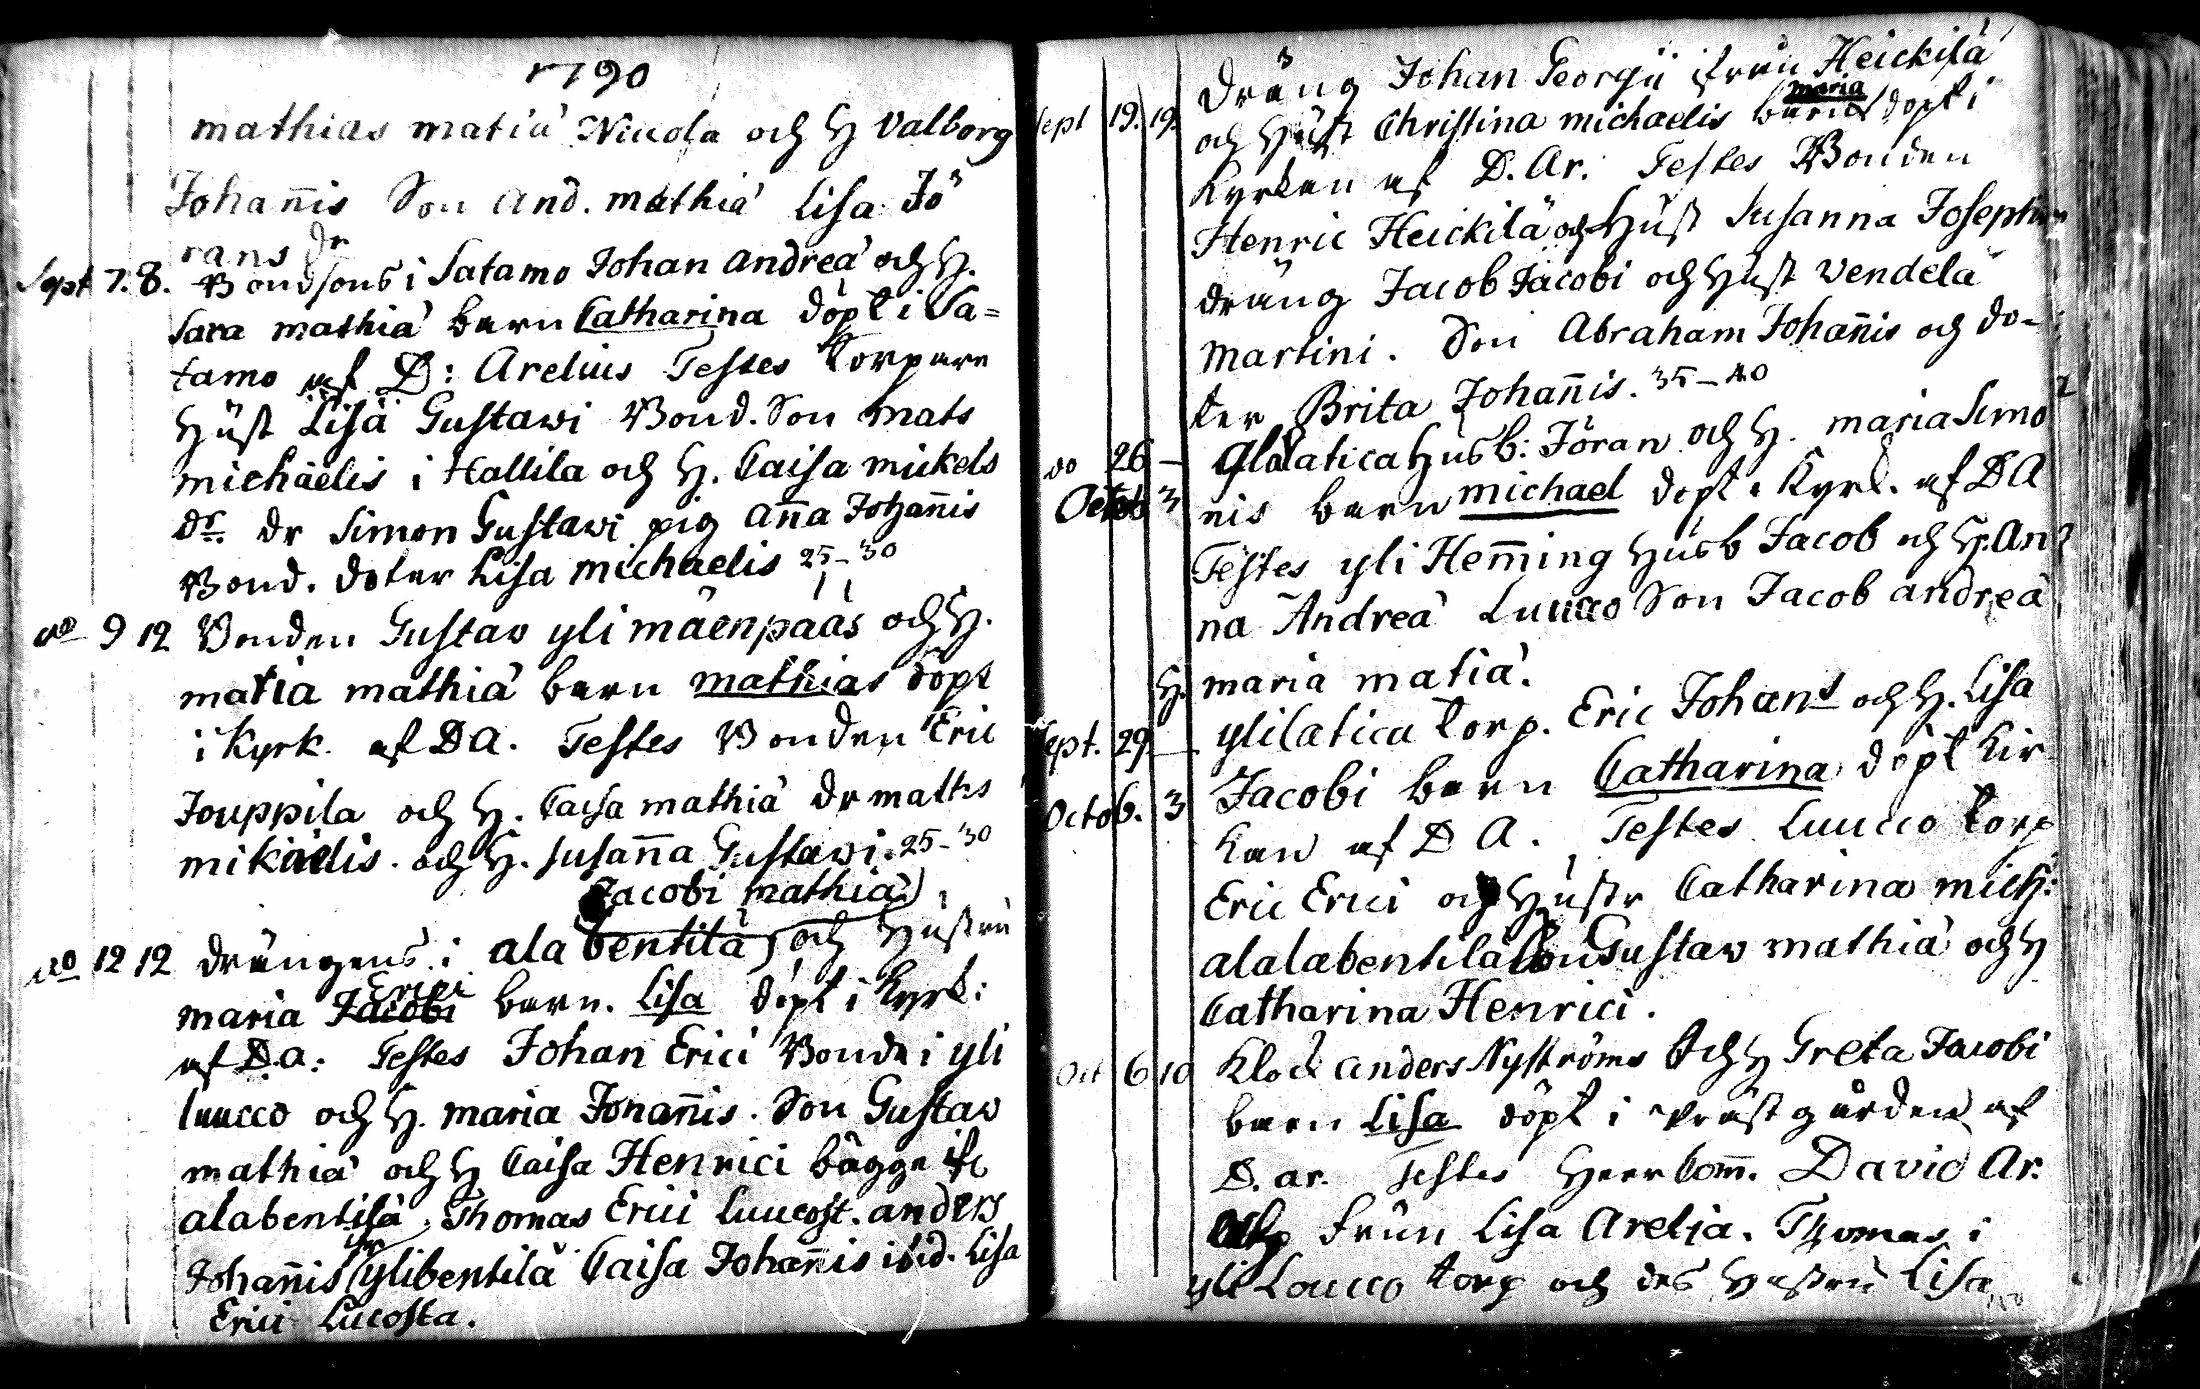 1790
mathias matiä Niccola och H Valborg
Johannis Son And. mathiä Lisa Jö
rans dr
Sept 7. 8. Bondsons i Satamo Johan Andreä och H.
Sara mathiä barn Catharina döpt i Sa=
tamo af D: Arelius Testes Torpare
Hust Lisa Gustawi Bond. Son Mats
michäelis i Hallila och H. Caisa mickels
dr. dr Simon Gustawi pig Anna Johannis
Bond. doter Lisa michaelis 25-30
do 9 12 Bonden Gustav yli mäenpääs och H.
maria mathiä barn mathias döpt
i Kyrk. af D A. Testes Bonden Eric
Jouppila och H. Caisa mathiä dr maths
mikäelis. och H. Susanna Gustawi. 25-30
Jacobi mathiä
do 12 12 drängens i ala bentilä och Hustru
Erici
maria Jacobi barn. Lisa döpt i Kyrk:
af D.a: Testes Johan Erici Bonde i yli
luucco och H. maria Johannis. Son Gustav
mathiä och H Caisa Henrici bägge if
alabentilä, Thomas Erici Luucost. anders
Johannis fr ylibentilä Caisa Johannis ibid. Lisa
Erici Lucosta.
Dräng Johan Georgii från Heickilä
maria
Sept 19. 19. och Hust Christina michaelis barn döpt i
Kyrkan af D. Ar. Testes Bonden
Henric Heickilä och Hust Susanna Josephi
dräng Jacob Jacobi och Hust Vendela
Martini. Son Abraham Johannis och do-
ter Brita Johannis. 35-40
do 26 — Alalatica Husb: Jöran och H. maria Simo
Octob 3 nis barn michael döpt i Kyrk. af D A
Testes yli Hemming Husb Jacob och H. An
na Andreä Luucco Son Jacob andreä
H. maria matiä.
Sept. 29 — ylilatica Torp. Eric Johans och H. Lisa
Octob. 3 Jacobi barn Catharina döpt Kir
kan af D A. Testes Luucco Torp
Eric Erici och Hustr Catharina mich:
alalabentila Son Gustav mathiä och H
Catharina Henrici.
Oct 6 10 Klock anders Nyströms och H Greta Jacobi
barn Lisa döpt i Prästgården af
D. ar. Testes Herr Com. David Ar.
och Frun Lisa Arelia. Thomas i
yli Loucco Torp och des Hustru Lisa